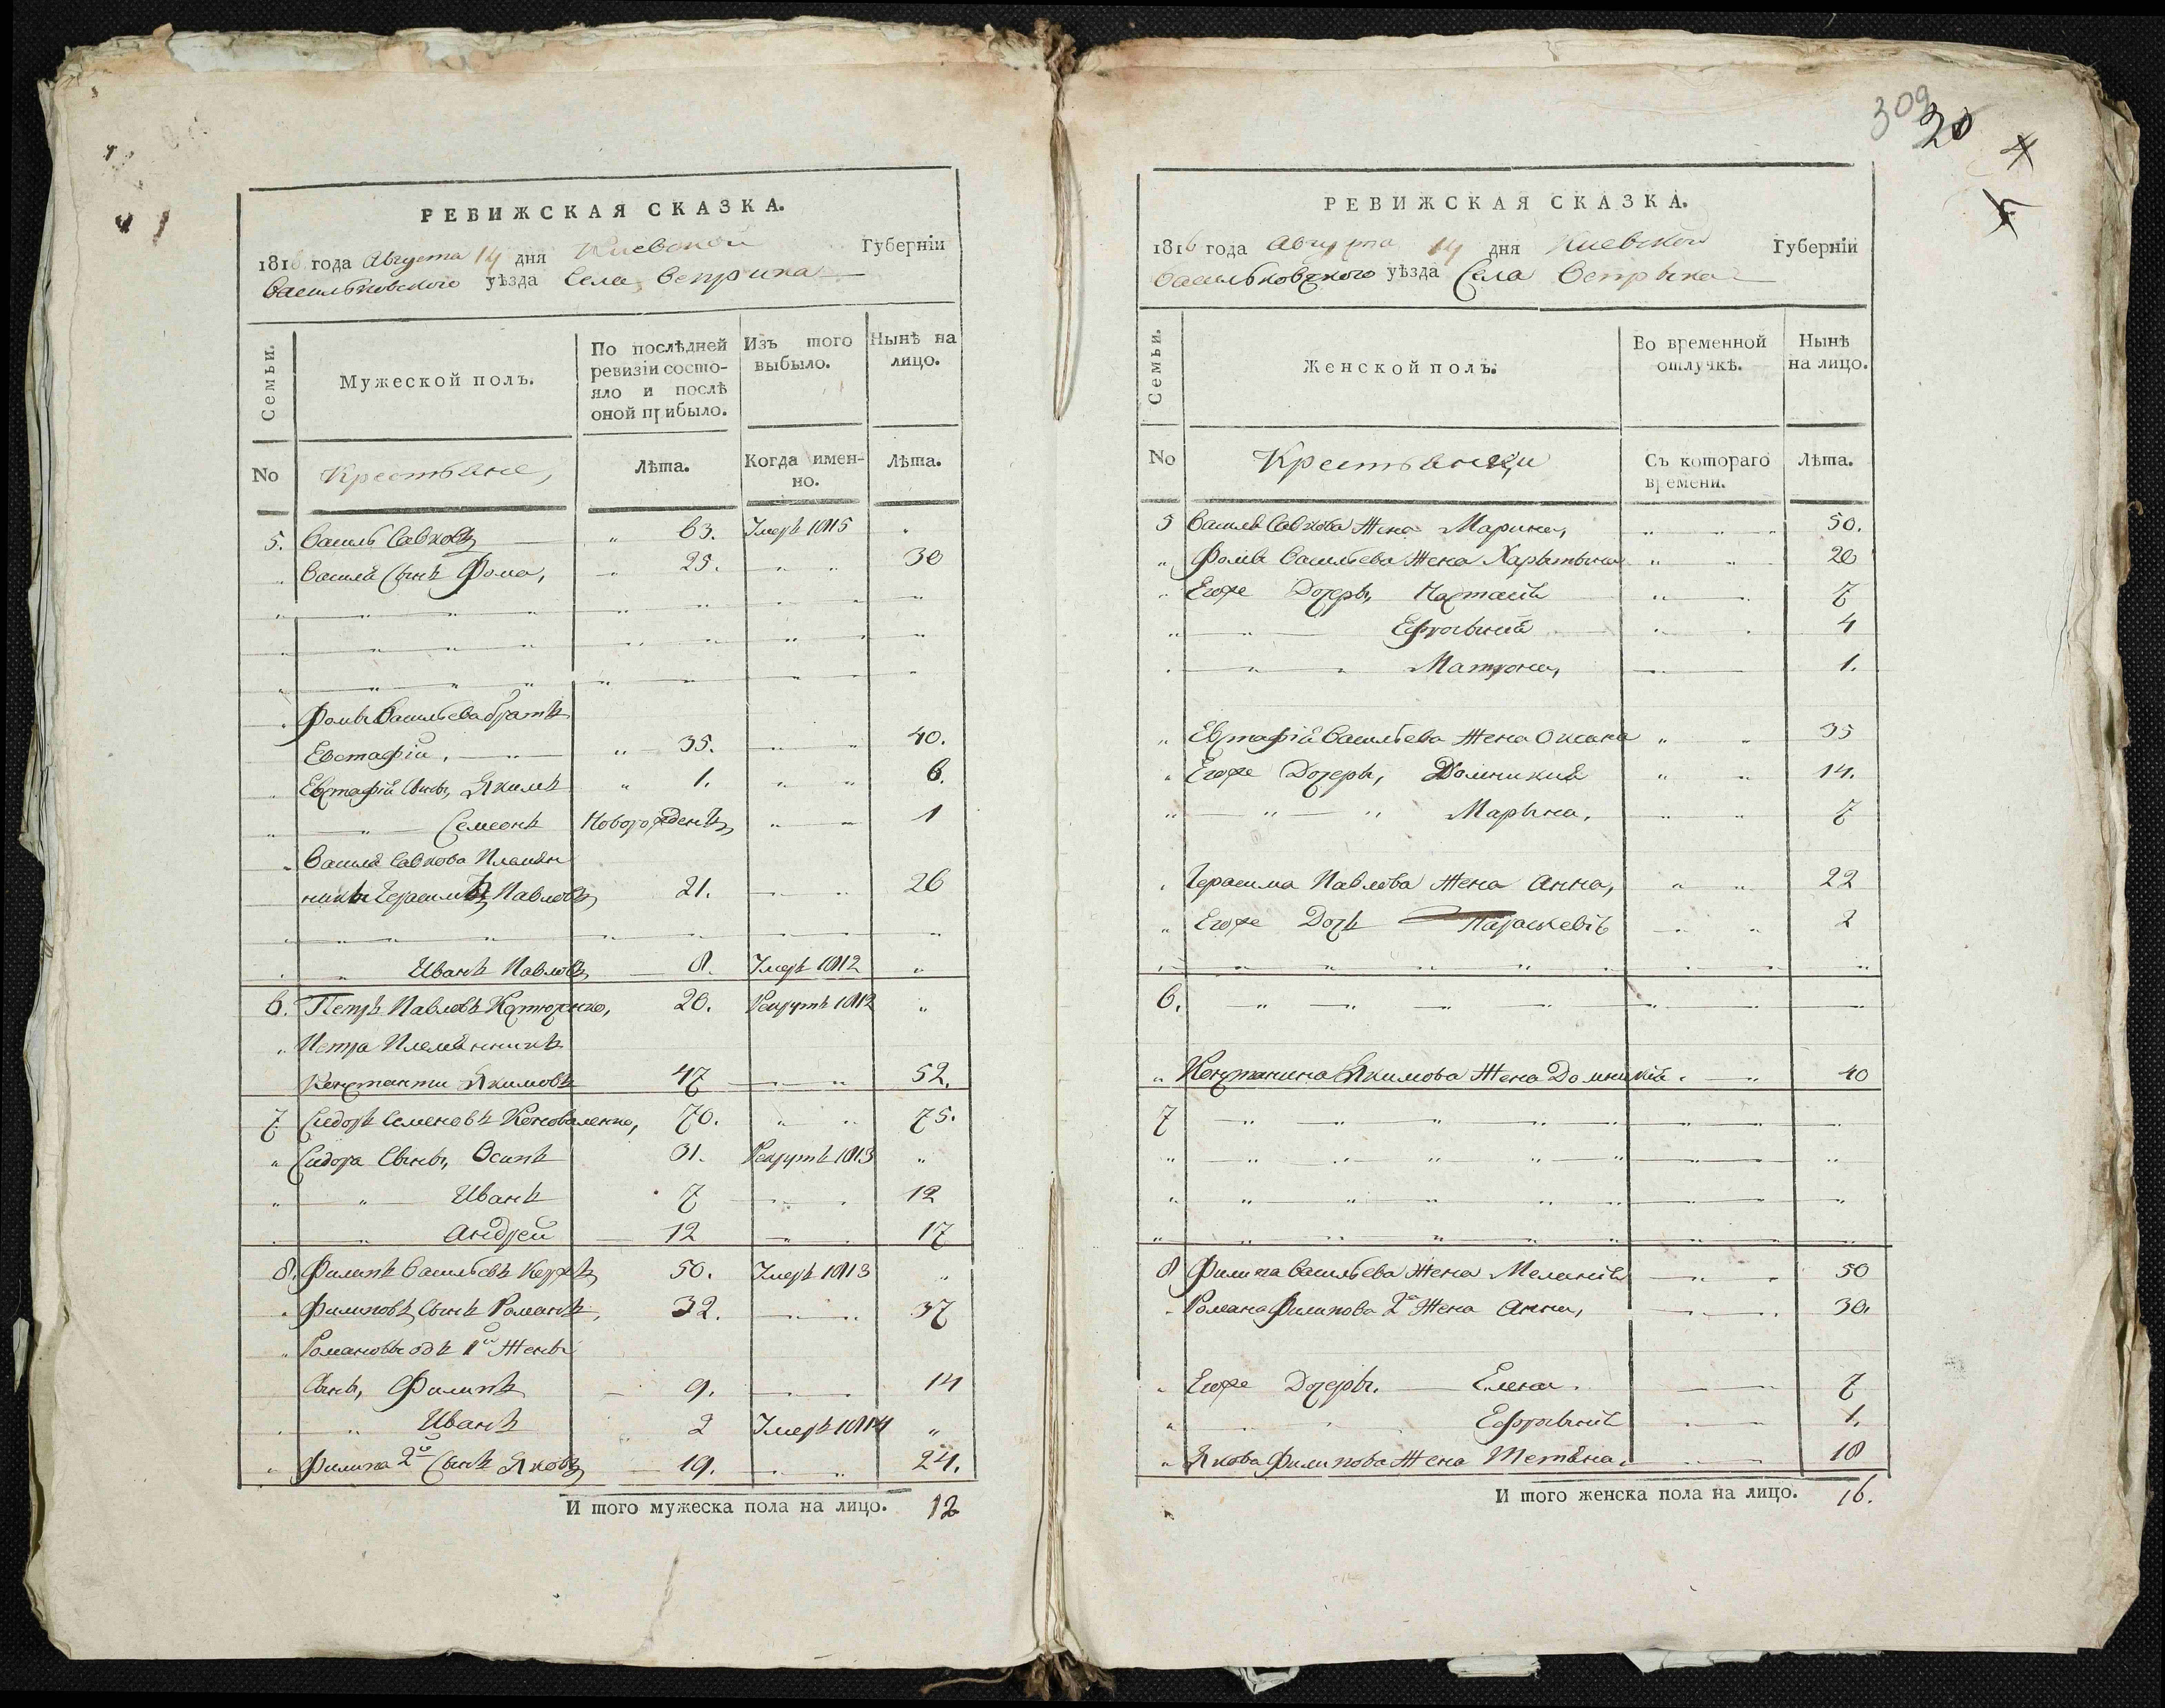 309
20
РЕВИЖСКАЯ СКАЗКА.
1816 года Августа 14 дня Киевской Губерніи
Васильковского уѣзда Села Веприка
Семьи.
Мужеской полъ.
По послѣдней ревизіи состо-
яло и послѣ
оной прибыло.
Изъ того выбыло.
Нынѣ на лицо.
No Крестьяне, Лѣта. Когда имен-
но. Лѣта.
5. Василь Савковъ 63. Умеръ 1815
Василя Сынъ Фома, 25. 30
Фомы Васильева братъ
Евстафій, 35. 40.
Евстафія Сыны, Якимъ 1. 6.
Семеонъ Новорожденъ 1
Василя Савкова Племян
никъ Герасимъ Павловъ 21. 26
Иванъ Павловъ 8. Умеръ 1812
6. Петръ Павловъ 20. Рекрутъ 1812
Петра Племянникъ
Константи Якимовъ 47 52.
7 Сидоръ Семеновъ Коноваленко, 70. 75.
Сидора Сыны, Осипъ 31. Рекрутъ 1813
Иванъ 7 12
Андрей 12 17
8. Филипъ Васильевъ 50. Умеръ 1813
Филиповъ Сынъ Романъ, 32. 37
Романовы одъ 1й Жены
Сыны, Филипъ 9. 14
Иванъ 2 Умеръ 1814
Филипа 2й Сынъ Яковъ 19. 24.
И того мужеска пола на лицо. 12
РЕВИЖСКАЯ СКАЗКА.
1816 года Августа 14 дня Киевской Губерніи
Васильковского уѣзда Села Веприка
Семьи.
Женской полъ.
Во временной отлучкѣ.
Нынѣ на лицо.
No Крестьянки Съ котораго
времени. Лѣта.
5 Василя Савкова Жена Марина, 50.
Фомы Васильева Жена Харытына 20
Егоже Дочеры, Настасія 7
Ефросынія 4
Матрона, 1.
Евстафія Васильева Жена Оксана 35
Егоже Дочеры, Домникія 14.
Марына, 7
Герасима Павлова Жена Анна, 22
Егоже Дочь Параскевія 2
6.
Констанина Якимова Жена Домникія. 40
7
8 Филипа Васильева Жена Меланія 50
Романа Филипова 2я Жена Анна, 30.
Егоже Дочеры. Елена. 7
Ефросынія 1.
Якова Филипова Жена Тетяна. 18
И того женска пола на лицо. 16.